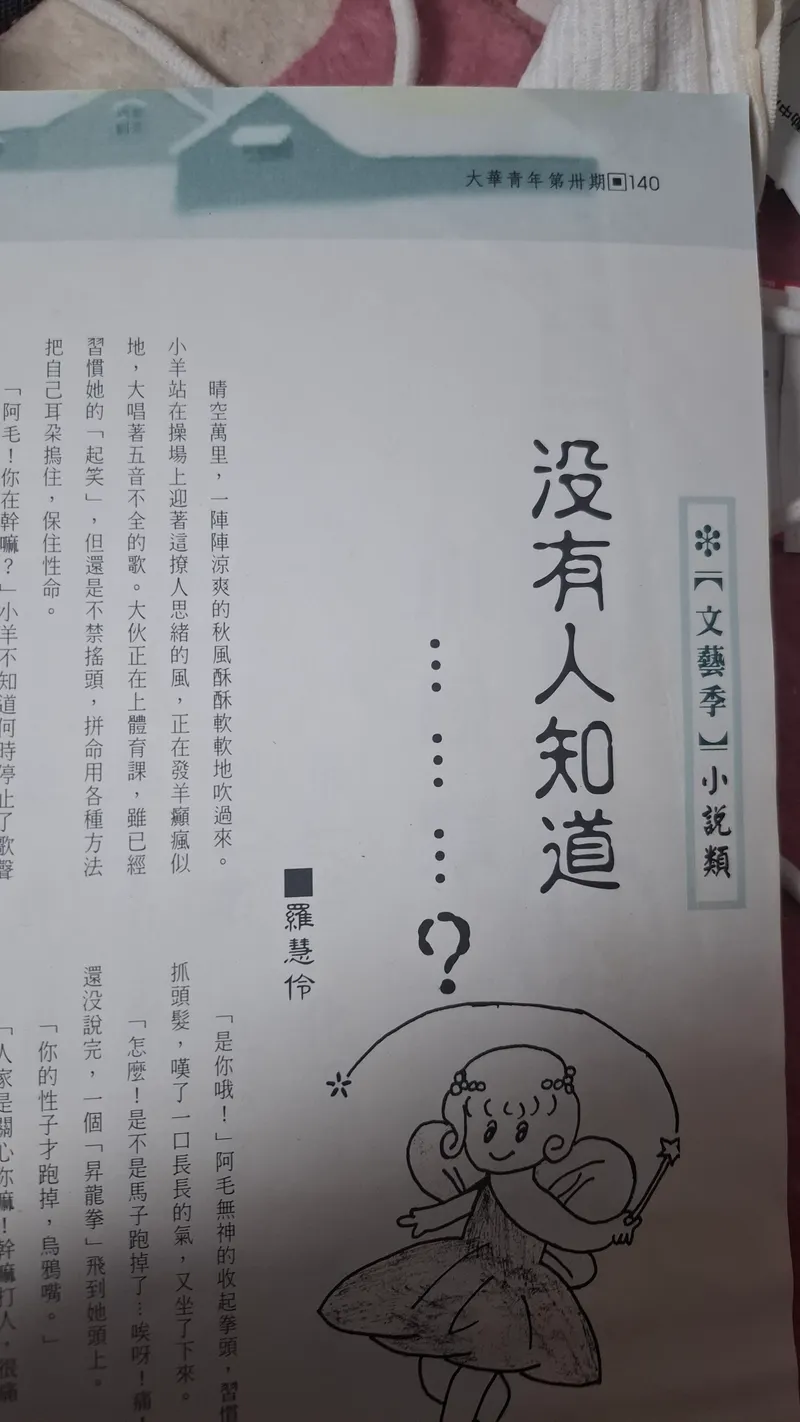 大華青年第卅期▣140
❇【文藝季】小說類
沒有人知道
⋯⋯⋯?
■羅慧伶
晴空萬里，一陣陣涼爽的秋風酥酥軟軟地吹過來。
小羊站在操場上迎著這撩人思緒的風，正在發羊癲瘋似
地，大唱著五音不全的歌。大伙正在上體育課，雖已經
習慣她的「起笑」，但還是不禁搖頭，拼命用各種方法
把自己耳朵搗住，保住性命。
「阿毛！你在幹嘛？」小羊不知道何時停止了歌聲
「是你哦！」阿毛無神的收起拳頭，習慣
抓頭髮，嘆了一口長長的氣，又坐了下來。
「怎麼！是不是馬子跑掉了…唉呀！痛！
還沒說完，一個「昇龍拳」飛到她頭上。
「你的性子才跑掉，烏鴉嘴。」
「人家是關心你嘛！幹嘛打人，很痛